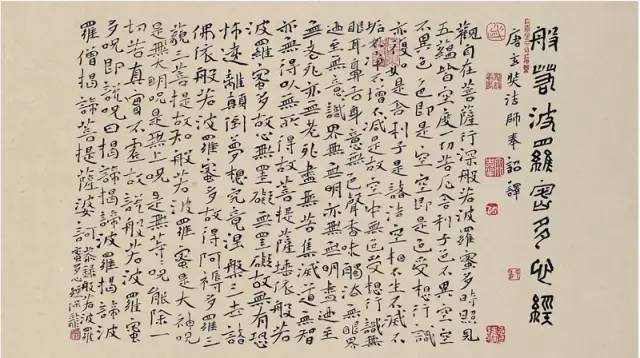 般若波羅蜜多心經
唐玄奘法師奉 詔譯
觀自在菩薩行深般若波羅蜜多時照見
五蘊皆空度一切苦厄舍利子色不異空空
不異色色即是空空即是色受想行識
亦復如是舍利子是諸法空相不生不滅不
垢不淨不增不減是故空中無色無受想行識無
眼耳鼻舌身意無色聲香味觸法無眼界
乃至無意識界無無明亦無無明盡乃至
無老死亦無老死盡無苦集滅道無智
亦無得以無所得故菩提薩埵依般若
波羅蜜多故心無罣礙無罣礙故無有恐
怖遠離顛倒夢想究竟涅槃三世諸
佛依般若波羅蜜多故得阿耨多羅三
藐三菩提故知般若波羅蜜是大神呪
是大明呪是無上呪是無等等呪能除一
切苦真實不虛故說般若波羅蜜
多呪即說呪曰揭諦揭諦波羅揭諦波
羅僧揭諦菩提薩婆訶 般若波羅
蜜多心經